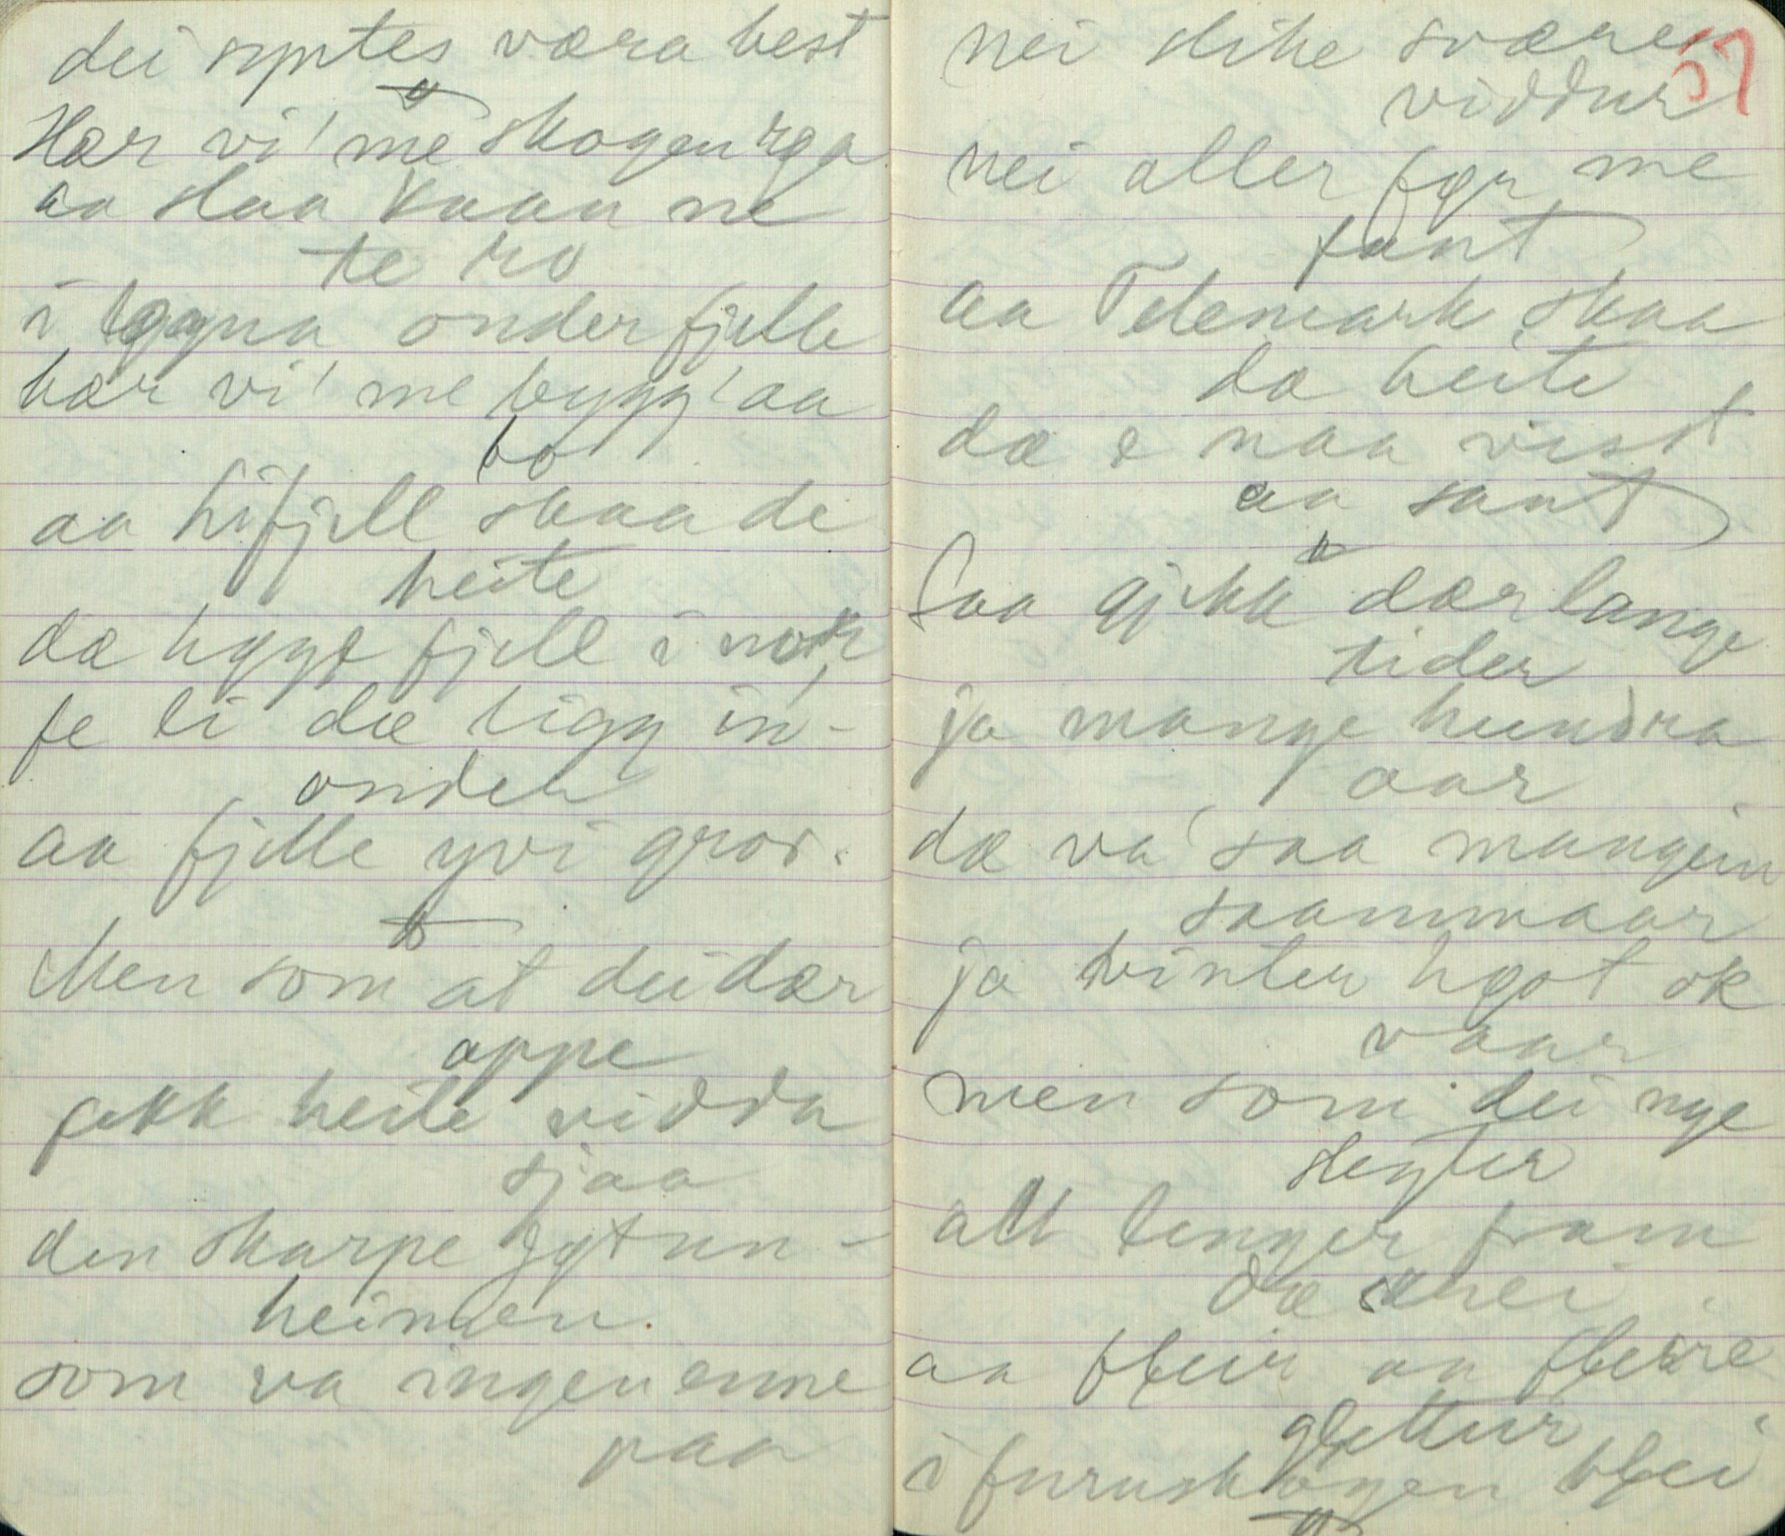 dei syntes væra best
Hær vi' me skogen rya
aa slaa kaan ne
te ro
i løgna onder fjelle
hær vi' me bygg' aa
bo
aa hifjell skaa de
heite
dæ høgst fjell i nor
fe li dæ ligg in-
onder
aa fjelle yvi gror.
Men som at dei dær
oppe
fekk heile vidda
sjaa
den skarpe Jøtun-
heimen.
som va ingen enne
paa
57
nei slike svære
viddur
nei aller før me
fant
aa Telemark skaa
dæ heite
dæ e naa visst
aa sant
Saa gjekk dær lange
tider
ja mange hundra
aar
dæ va' saa mangein
saammaar
ja vinter høst ok
vaar
men som dei nye
slegter
alt lenger fram
dæ skrei
aa fleir aa fleire
glettur
i furuskogen blei